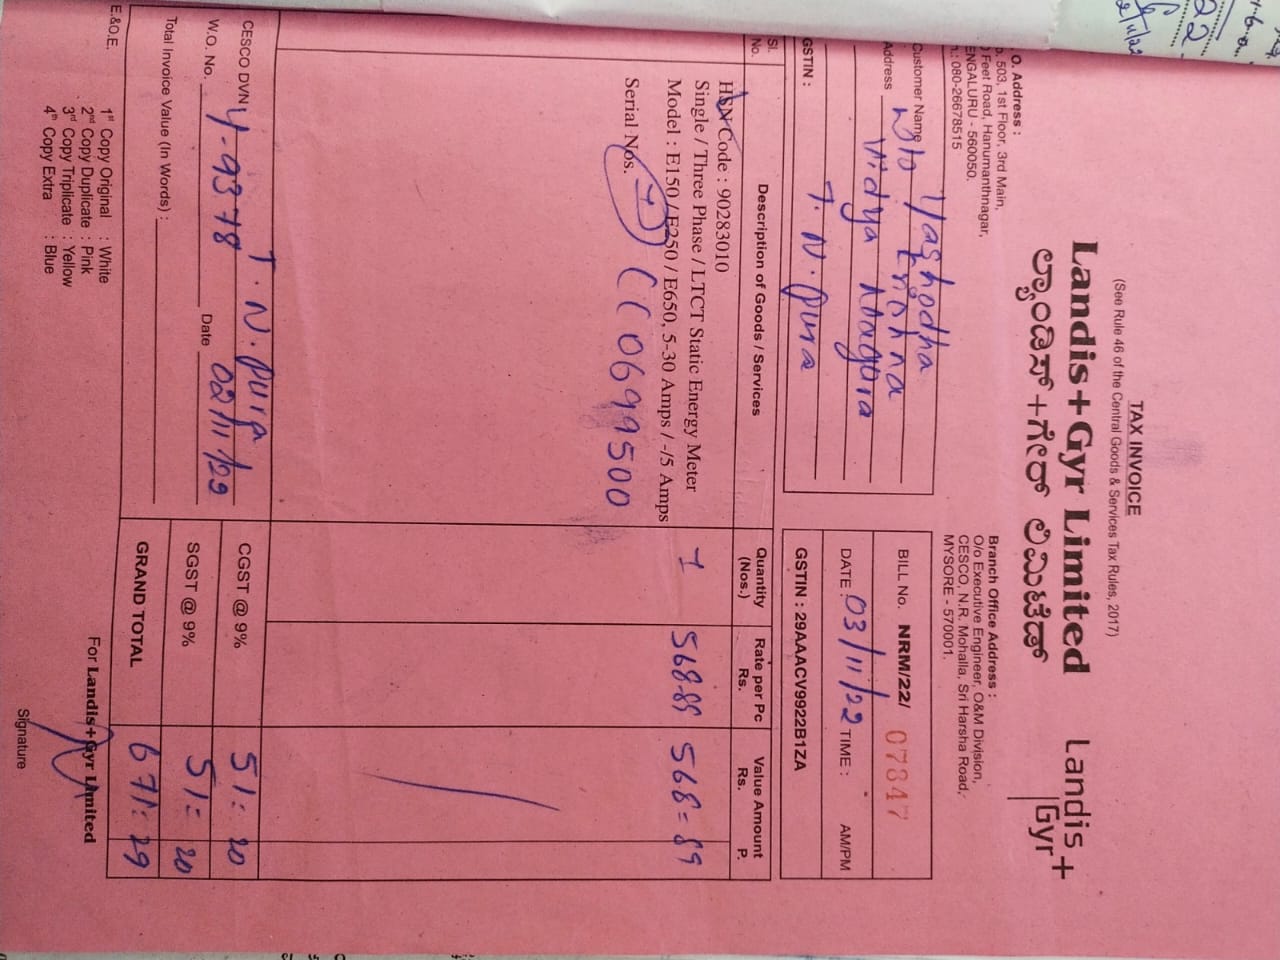 TAX INVOICE
(See Rule 46 of the Central Goods & Services Tax Rules, 2017)
Landis+Gyr Limited
ಲ್ಯಾಂಡಿಸ್+ಗೇರ್ ಲಿಮಿಟೆಡ್
Landis+
Gyr
. O. Address :
. 503, 1st Floor, 3rd Main,
Feet Road, Hanumanthnagar,
ENGALURU - 560050.
.: 080-26678515
Branch Office Address :
O/o Executive Engineer, O&M Division,
CESCO, N.R. Mohalla, Sri Harsha Road,
MYSORE - 570001.
Customer Name Yashodha
W/o Krishna
Address Vidya Nagara
T. N. Pura
GSTIN :
BILL No. NRM/22/ 07847
DATE : 03/11/22 TIME : AM/PM
GSTIN : 29AAACV9922B1ZA
Sl. No. Description of Goods / Services Quantity (Nos.) Rate per Pc Rs. Value Amount Rs. P.
HSN Code : 90283010
Single / Three Phase / LTCT Static Energy Meter
Model : E150 / E250 / E650, 5-30 Amps / -/5 Amps 1 568-89 568=89
Serial Nos. 06999500
CESCO DVN T. N. Pura
W.O. No. 4-9378 Date 02/11/22
Total Invoice Value (In Words) :
CGST @ 9% 51= 20
SGST @ 9% 51= 20
GRAND TOTAL 671= 29
E.&O.E.
1st Copy Original : White
2nd Copy Duplicate : Pink
3rd Copy Triplicate : Yellow
4th Copy Extra : Blue
For Landis+Gyr Limited
Signature